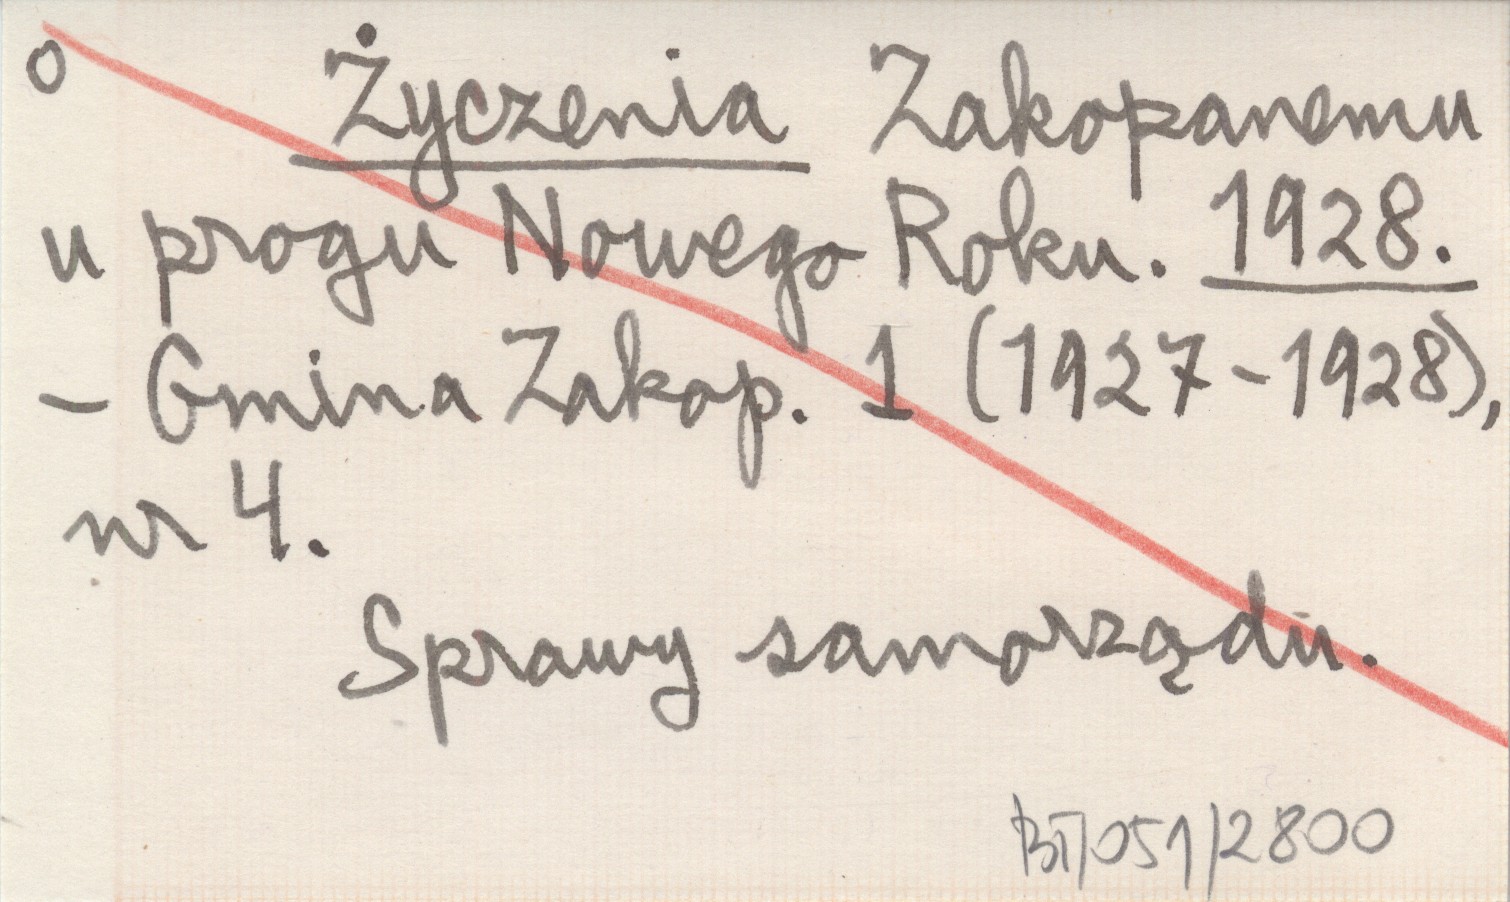 o Życzenia Zakopanemu
u progu Nowego Roku. 1928.
- Gmina Zakop. 1 (1927-1928),
nr 4.
Sprawy samorządu.
BT/051/2800